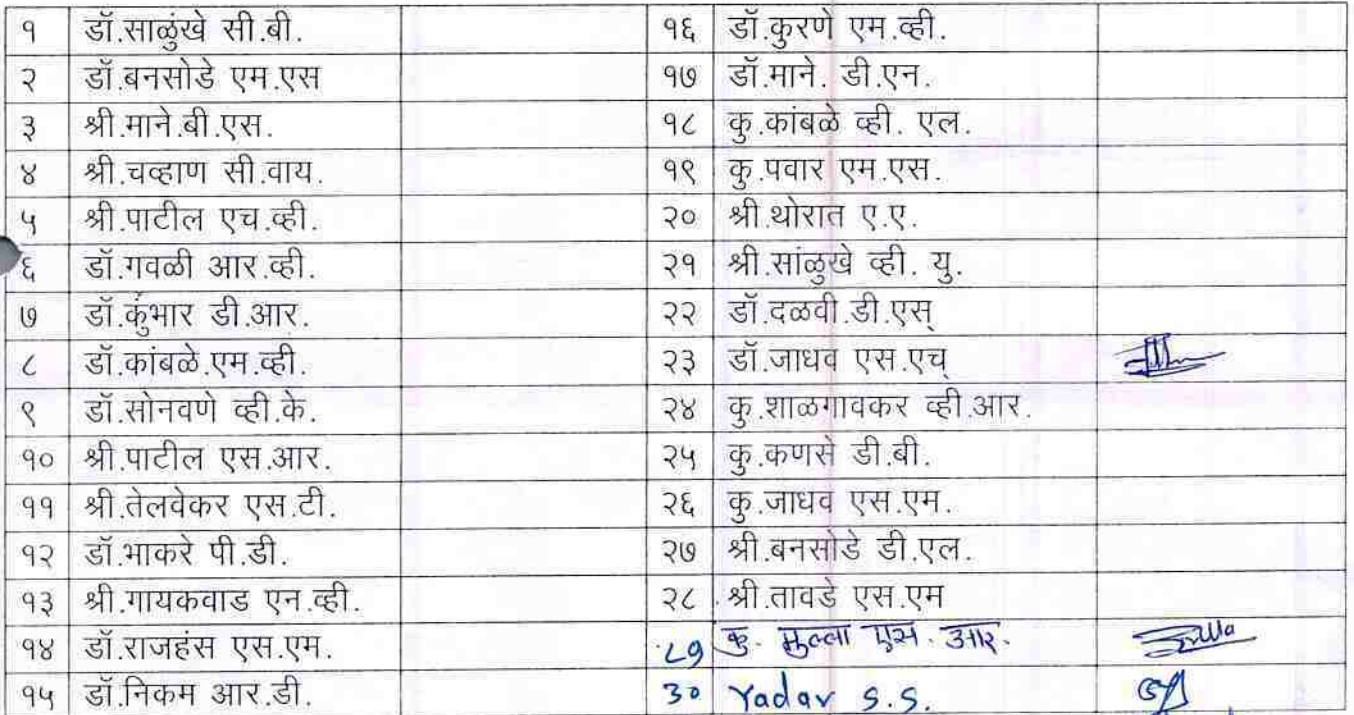 १ डॉ.साळुंखे सी.बी. १६ डॉ.कुरणे एम.व्ही.
२ डॉ.बनसोडे एम.एस १७ डॉ.माने. डी.एन.
३ श्री.माने.बी.एस. १८ कु.कांबळे व्ही. एल.
४ श्री.चव्हाण सी.वाय. १९ कु.पवार एम.एस.
५ श्री.पाटील एच.व्ही. २० श्री.थोरात ए.ए.
६ डॉ.गवळी आर.व्ही. २१ श्री.सांळुखे व्ही. यु.
७ डॉ.कुंभार डी.आर. २२ डॉ.दळवी.डी.एस्
८ डॉ.कांबळे.एम.व्ही. २३ डॉ.जाधव एस.एच्
९ डॉ.सोनवणे व्ही.के. २४ कु.शाळगावकर व्ही.आर.
१० श्री.पाटील एस.आर. २५ कु.कणसे डी.बी.
११ श्री.तेलवेकर एस.टी. २६ कु.जाधव एस.एम.
१२ डॉ.भाकरे पी.डी. २७ श्री.बनसोडे डी.एल.
१३ श्री.गायकवाड एन.व्ही. २८ श्री.तावडे एस.एम
१४ डॉ.राजहंस एस.एम. २९ कु. मुल्ला एस. आर.
१५ डॉ.निकम आर.डी. 30 Yadav S.S.